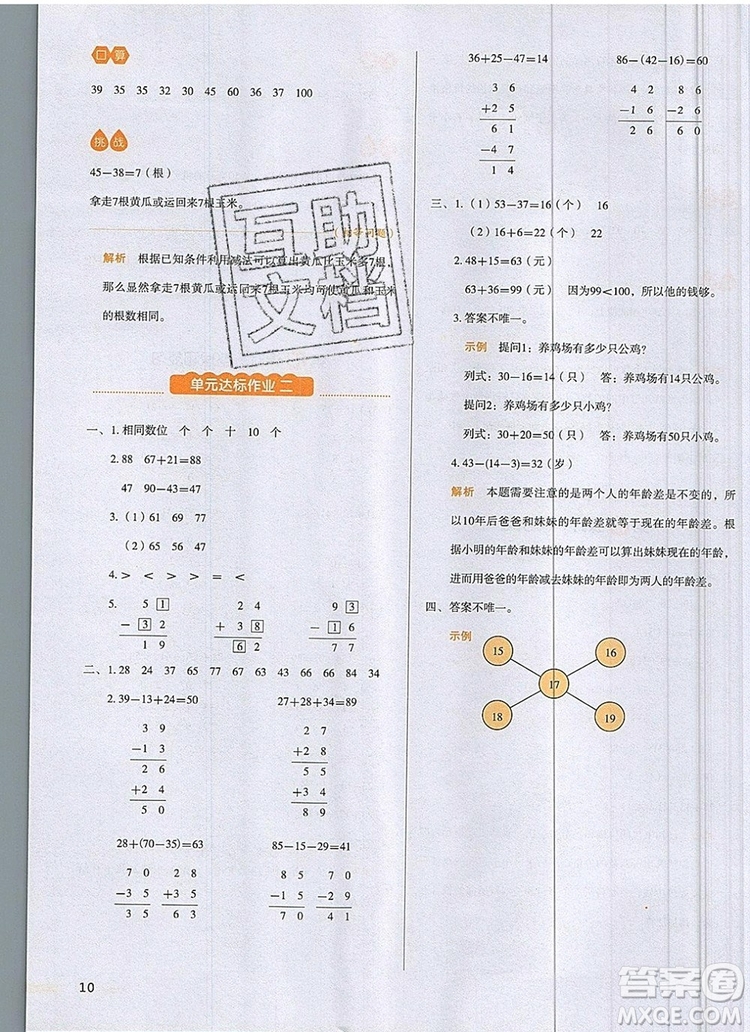 口算
39 35 35 32 30 45 60 36 37 100
挑战
45−38=7（根）
拿走7根黄瓜或运回来7根玉米。
解析 根据已知条件利用减法可以算出黄瓜比玉米多7根，
那么显然拿走7根黄瓜或运回来7根玉米均可使黄瓜和玉米
的根数相同。
互助
文档
单元达标作业 二
一、1. 相同数位 个 个 十 10 个
2. 88 67+21=88
47 90−43=47
3.（1）61 69 77
（2）65 56 47
4. > < > > = <
5. 5 1 2 4 9 3
− 3 2 + 3 8 − 1 6
1 9 6 2 7 7
二、1. 28 24 37 65 77 67 63 43 66 66 84 34
2. 39−13+24=50 27+28+34=89
3 9 2 7
− 1 3 + 2 8
2 6 5 5
+ 2 4 + 3 4
5 0 8 9
28+(70−35)=63 85−15−29=41
7 0 2 8 8 5 7 0
− 3 5 + 3 5 − 1 5 − 2 9
3 5 6 3 7 0 4 1
10
36+25−47=14 86−(42−16)=60
3 6 4 2 8 6
+ 2 5 − 1 6 − 2 6
6 1 2 6 6 0
− 4 7
1 4
三、1.（1）53−37=16（个） 16
（2）16+6=22（个） 22
2. 48+15=63（元）
63+36=99（元） 因为99<100，所以他的钱够。
3. 答案不唯一。
示例 提问1：养鸡场有多少只公鸡？
列式：30−16=14（只） 答：养鸡场有14只公鸡。
提问2：养鸡场有多少只小鸡？
列式：30+20=50（只） 答：养鸡场有50只小鸡。
4. 43−(14−3)=32（岁）
解析 本题需要注意的是两个人的年龄差是不变的，所
以10年后爸爸和妹妹的年龄差就等于现在的年龄差。根
据小明的年龄和妹妹的年龄可以算出妹妹现在的年龄，
进而用爸爸的年龄减去妹妹的年龄即为两人的年龄差。
四、答案不唯一。
示例
15 16
17
18 19
答案圈
MXQE.COM